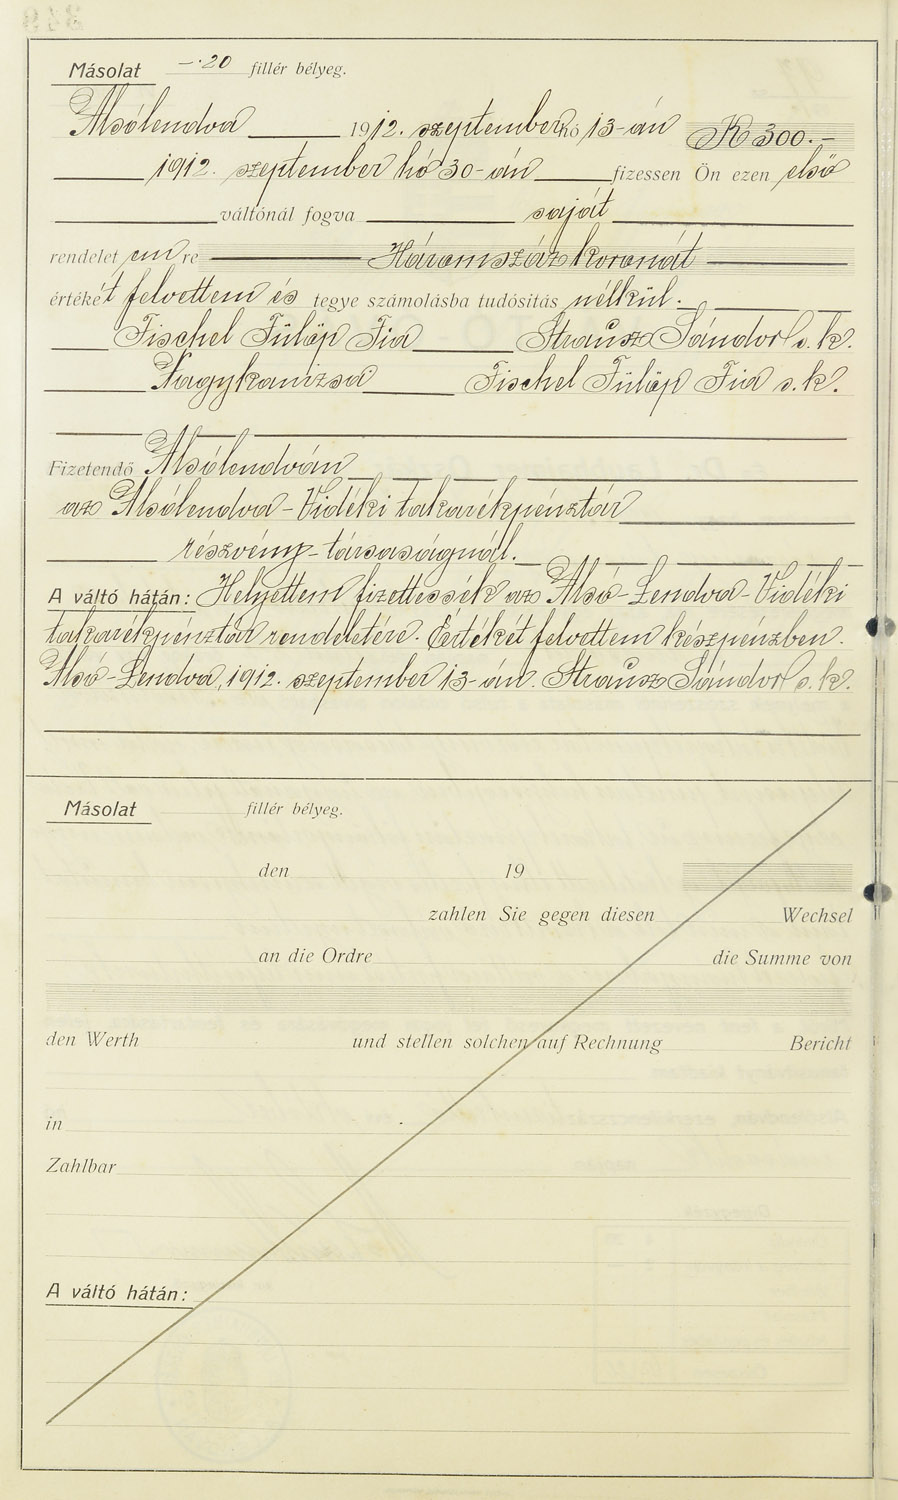 Másolat —·20 fillér bélyeg.
Alsólendva 1912. szeptember hó 13-án K 300.-
1912. szeptember hó 30-án fizessen Ön ezen első
váltónál fogva saját
rendelet em re Háromszáz koronát
értékét felvettem és tegye számolásba tudósítás nélkül.
Fischel Fülöp Fia Strausz Sándor s. k.
Nagykanizsa Fischel Fülöp Fia s. k.
Fizetendő Alsólendván
az Alsólendva-Vidéki takarékpénztár
részvény-társaságnál.
A váltó hátán: Helyettem fizettessék az Alsó-Lendva-Vidéki
takarékpénztár rendeletére. Értékét felvettem készpénzben.
Alsó-Lendva, 1912. szeptember 13-án. Strausz Sándor s. k.
Másolat fillér bélyeg.
den 19
zahlen Sie gegen diesen Wechsel
an die Ordre die Summe von
den Werth und stellen solchen auf Rechnung Bericht
in
Zahlbar
A váltó hátán: